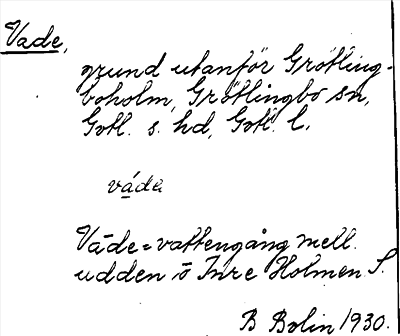 Vade,
grund utanför Grötling-
boholm, Grötlingbo sn,
Gotl. s. hd, Gotl. l.
váda
Väde = vattengång mell.
udden o Inre Holmen S.
B Bolin 1930.